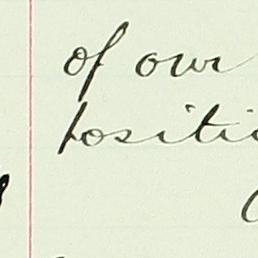 of our
positi